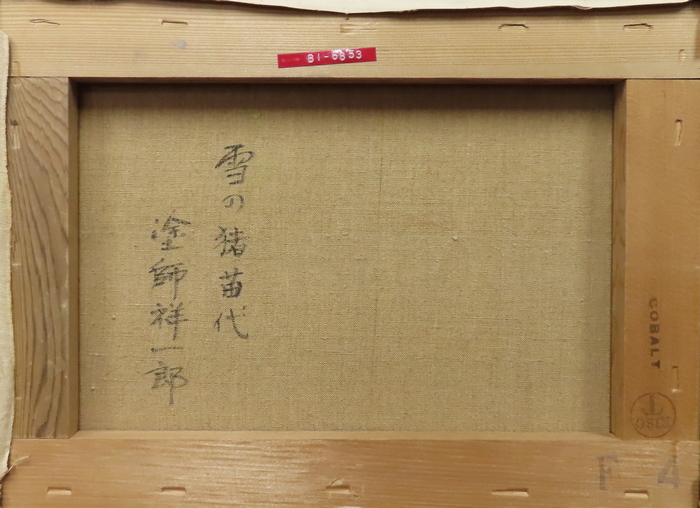 81-6853
雪の猪苗代
塗師祥一郎
COBALT
F 4